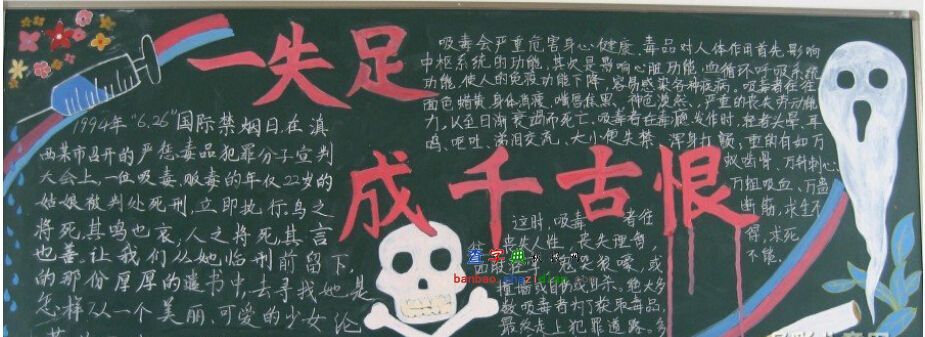 一失足
成千古恨
1994年“6.26”国际禁烟日,在滇
西某市召开的严惩毒品犯罪分子宣判
大会上,一位吸毒、贩毒的年仅22岁的
姑娘被判处死刑,立即执行。鸟之
将死,其鸣也哀,人之将死,其言
也善。让我们从她临刑前留下
的那份厚厚的遗书中去寻找她是
怎样从一个美丽、可爱的少女沦
吸毒会严重危害身心健康,毒品对人体作用首先影响
中枢系统的功能,其次是影响心脏功能,血循环呼吸系统
功能,使人的免疫功能下降,容易感染各种疾病。吸毒者往往
面色蜡黄,身体消瘦,嘴唇焦黑,神色漠然,严重的丧失劳动能
力,以至日渐衰弱而死亡。吸毒者在毒瘾发作时,轻者头晕、耳
鸣、呕吐、涕泪交流、大小便失禁、浑身打颤,重的有如万
蚁啮骨、万针刺心、
万蛆吸血、万蛊
断筋,求生不
得,求死
不能。
这时,吸毒者往
往丧失人性,丧失理智,
或
自杀。绝大多
数吸毒者为了获取毒品,
最终走上犯罪道路。多
查字典